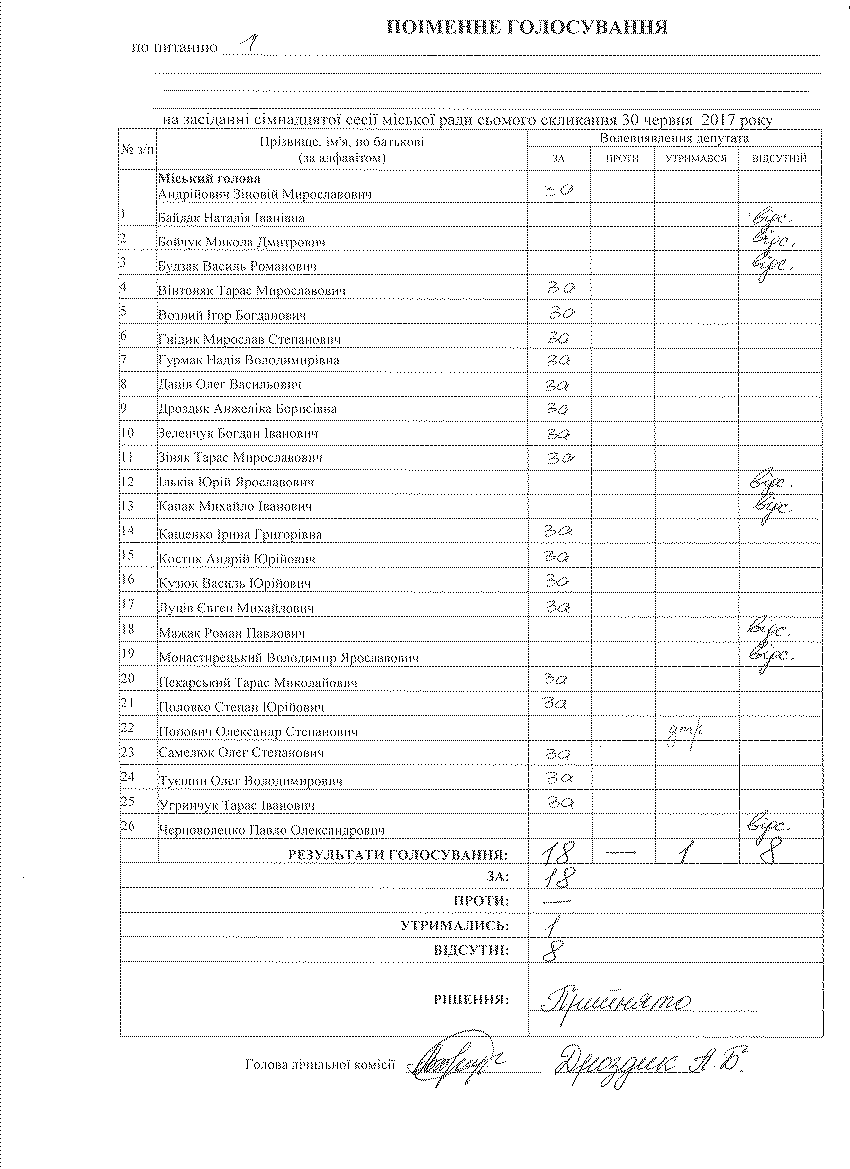 ПОІМЕННЕ ГОЛОСУВАННЯ
по питанню 1
на засіданні сімнадцятої сесії міської ради сьомого скликання 30 червня 2017 року
№ з/п Прізвище, ім'я, по батькові (за алфавітом) Волевиявлення депутата
ЗА ПРОТИ УТРИМАВСЯ ВІДСУТНІЙ
Міський голова
Андрійович Зіновій Мирославович за
1 Байдак Наталія Іванівна відс.
2 Бойчук Микола Дмитрович відс.
3 Будзак Василь Романович відс.
4 Вінтоняк Тарас Мирославович за
5 Возний Ігор Богданович за
6 Гнідик Мирослав Степанович за
7 Гурмак Надія Володимирівна за
8 Даців Олег Васильович за
9 Дроздик Анжеліка Борисівна за
10 Зеленчук Богдан Іванович за
11 Зіняк Тарас Мирославович за
12 Ільків Юрій Ярославович відс.
13 Капак Михайло Іванович відс.
14 Кащенко Ірина Григорівна за
15 Костик Андрій Юрійович за
16 Кузюк Василь Юрійович за
17 Луців Євген Михайлович за
18 Мажак Роман Павлович відс.
19 Монастирецький Володимир Ярославович відс.
20 Пекарський Тарас Миколайович за
21 Половко Степан Юрійович за
22 Попович Олександр Степанович утр
23 Самелюк Олег Степанович за
24 Туєшин Олег Володимирович за
25 Угринчук Тарас Іванович за
26 Черноволецко Павло Олександрович відс.
РЕЗУЛЬТАТИ ГОЛОСУВАННЯ: 18 — 1 8
ЗА: 18
ПРОТИ: —
УТРИМАЛИСЬ: 1
ВІДСУТНІ: 8
РІШЕННЯ: Прийнято
Голова лічильної комісії Дроздик А.Б.